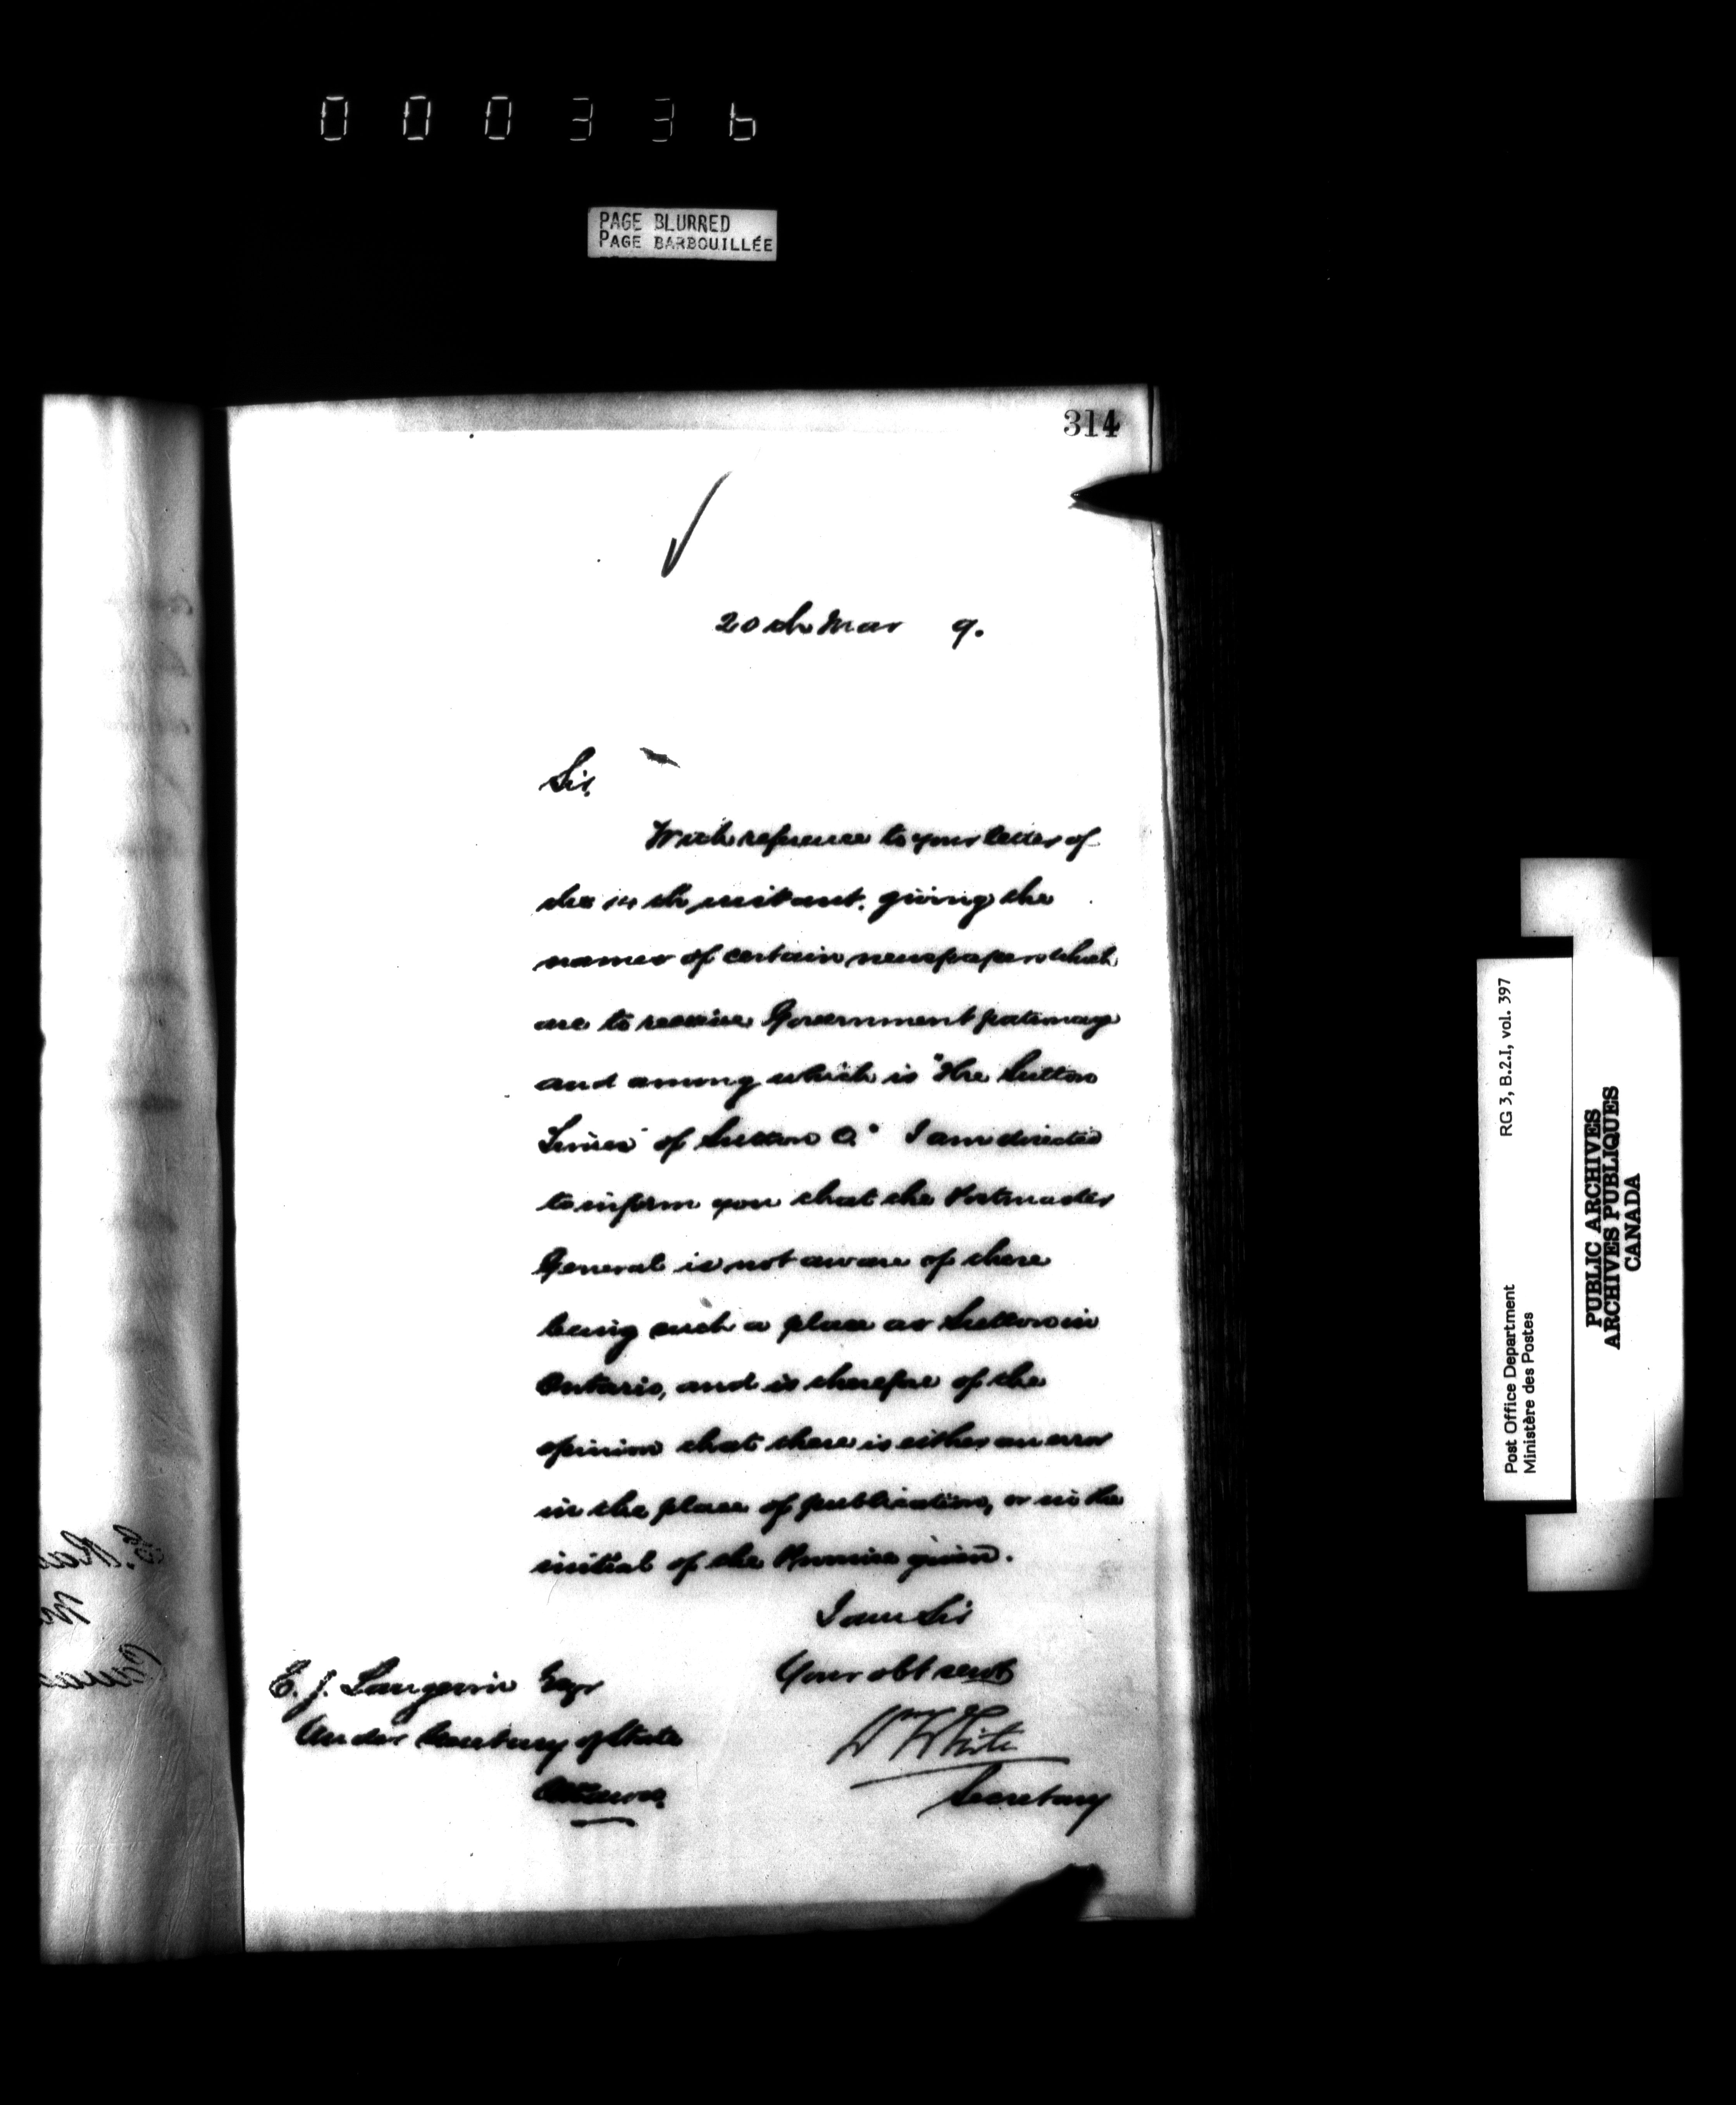 000336
PAGE BLURRED
PAGE BARBOUILLÉE
314
20th Mar 9.
Sir,
With reference to your letter of
the 14th instant, giving the
names of certain newspapers which
are to receive Government patronage
and among which is "The Sutton
of Sutton O." I am directed
to inform you that the Postmaster
General is not aware of there
being such a place as Sutton in
Ontario, and is therefore of the
opinion that there is either an error
in the place of publication, or in the
initial of the Province given.
I am Sir
Your obt servt
E. J. Langevin Esqr
Wm White
Under Secretary of State
Secretary
Ottawa.
RG 3, B.2.I, vol. 397
Post Office Department
Ministère des Postes
PUBLIC ARCHIVES
ARCHIVES PUBLIQUES
CANADA